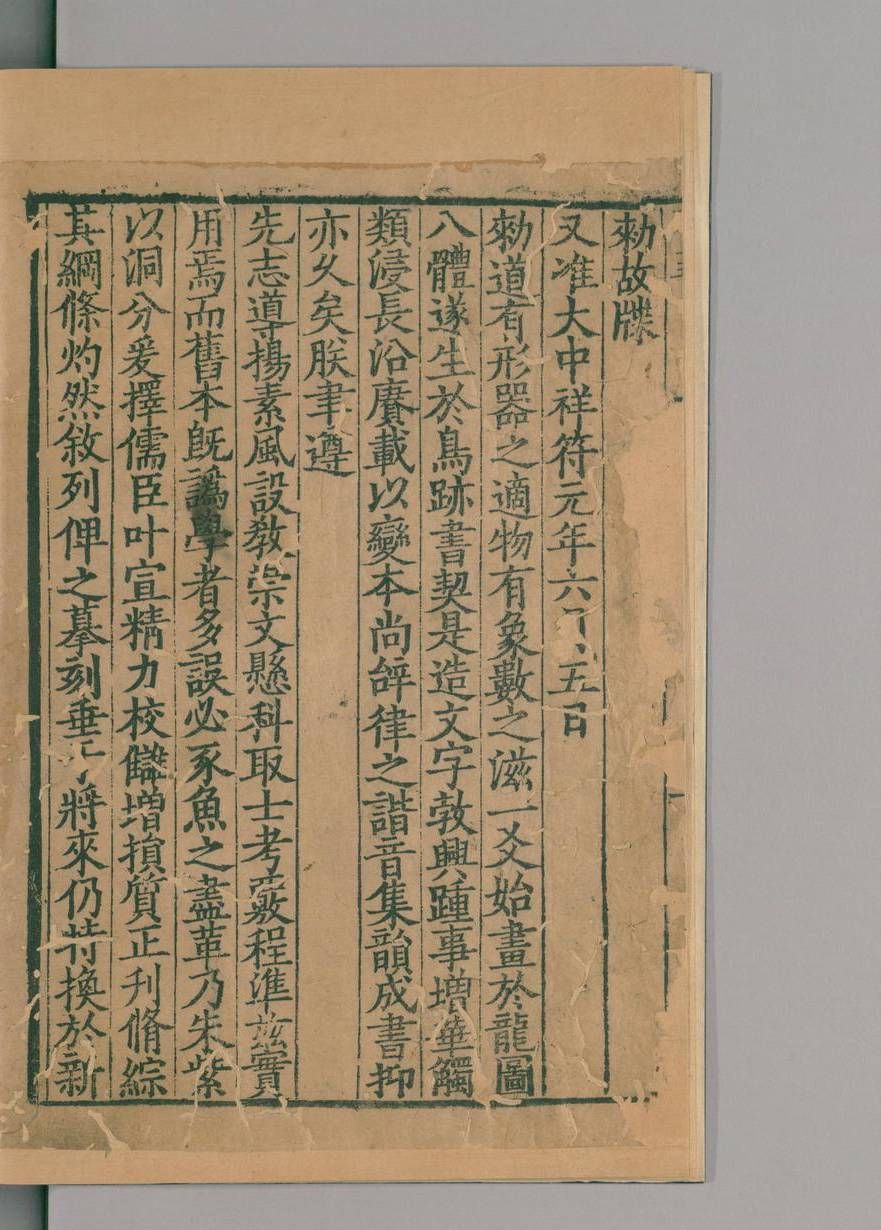 勑故牒
又准大中祥符元年六月五日
勑道有形器之適物有象數之滋一爻始畫於龍圖
八體遂生於鳥跡書契是造文字敦興踵事增華觸
類浸長沿賡載以變本尚辝律之諧音集韻成書抑
亦久矣朕聿遵
先志導揚素風設敎崇文懸科取士考覈程準兹實
用焉而舊本旣譌學者多誤必豕魚之盡革乃朱紫
以洞分爰擇儒臣叶宣精力校讎增損質正刋脩綜
其綱條灼然敘列俾之摹刻垂于將來仍特換於新